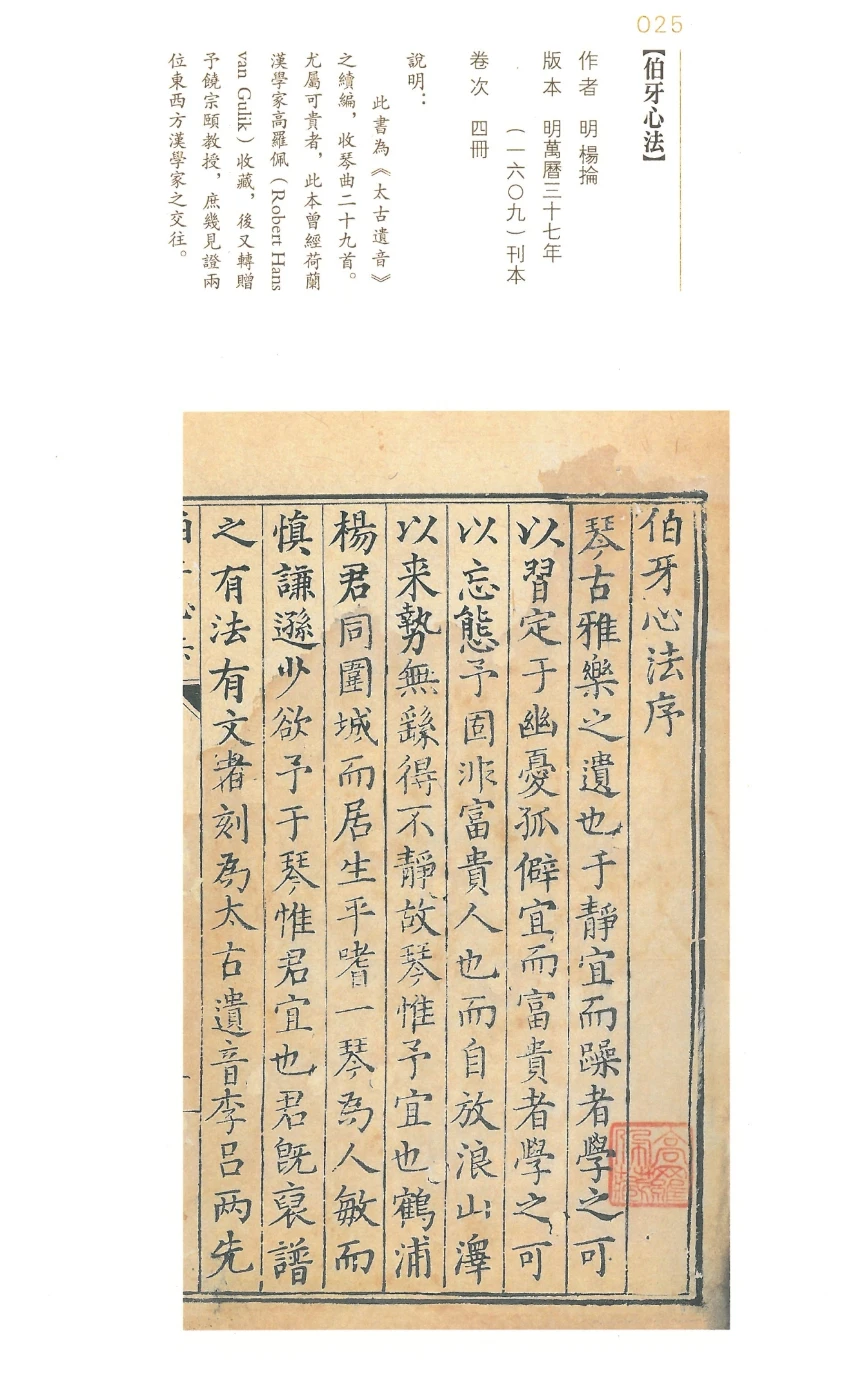 025
【伯牙心法】
作者 明 楊掄
版本 明萬曆三十七年
(一六〇九)刊本
卷次 四冊
說明：
此書為《太古遺音》
之續編，收琴曲二十九首。
尤屬可貴者，此本曾經荷蘭
漢學家高羅佩（Robert Hans
van Gulik）收藏，後又轉贈
予饒宗頤教授，庶幾見證兩
位東西方漢學家之交往。
伯牙心法序
琴古雅樂之遺也于靜宜而躁者學之可
以習定于幽憂孤僻宜而富貴者學之可
以忘態予固非富貴人也而自放浪山澤
以来勢無繇得不靜故琴惟予宜也鶴浦
楊君同圍城而居生平嗜一琴為人敏而
慎謙遜少欲予于琴惟君宜也君旣裒譜
之有法有文者刻為太古遺音李呂两先